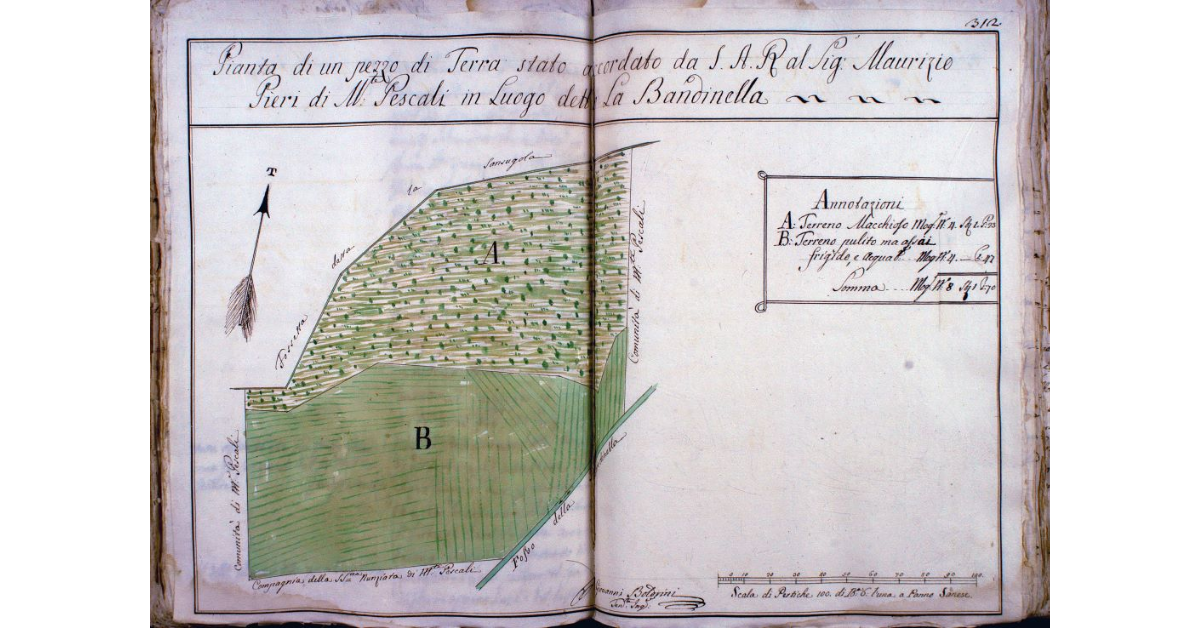 312
Pianta di un pezzo di Terra stato accordato da S. A. R. al Sig: Maurizio
Pieri di M:te Pescali in Luogo detto La Bandinella
T
Fossetta
detta
la
Sansugola
A
B
Comunità di M:te Pescali
Comunità di M:te Pescali
Compagnia della SS:ma Nunziata di M:te Pescali
Fosso
della
Annotazioni
A: Terreno Macchioso Mog N:° 4. St 2
B: Terreno pulito ma assai
frigido, e acquat Mog N:° 4 42
Somma Mog N:° 8 St 1 70
Giovanni Bolgrini
Ing
0 10 20 30 40 50 60 70 80 90 100
Scala di Pertiche 100. di B:a 5. l'una a Panno Sanese